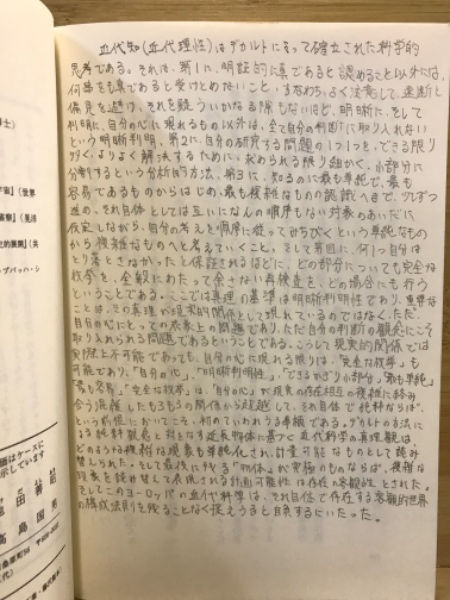 近代知(近代理性)はデカルトによって確立された科学的
思考である。それは、第1に、明証的に真であると認めること以外には、
何事をも真であると受けとめないこと、すなわち、よく注意して、速断と
偏見を避け、それを疑ういかなる隙もないほど、明晰に、そして
判明に、自分の心に現れるもの以外は、全て自分の判断に取り入れない
という明晰判明、第2に、自分の研究する問題の1つ1つを、できる限り
多く、よりよく解決するために、求められる限り細かく、小部分に
分割するという分析的方法、第3に、知るのに最も単純で、最も
容易であるものからはじめ、最も複雑なものの認識へまで、少しずつ
進め、それ自体としては互いになんの順序もない対象のあいだに
仮定しながら、自分の考えを順序に従ってみちびくという単純なもの
から複雑なものへと考えていくこと、そして第四に、何1つ自分は
とり落とさなかったと保証されるほどに、どの部分についても完全な
枚挙を、全般にわたって余さない再検査を、どの場合にも行う
ということである。ここでは真理の基準は明晰判明性であり、重要な
ことは、その真理が現実的関係として現れているのではなく、ただ
自分の心にとっての表象上の問題であり、ただ自分の判断の観念にこそ
取り入れられる問題であるということである。こうして現実的関係では
実際上不可能であっても、自分の心に現れる限りは、「完全な枚挙」も
可能であり、「自分の心」、「明晰判明性」、「できるかぎり小部分」、「最も単純」
「最も容易」、「完全な枚挙」は、「自分の心」が現実の存在相互の複雑に絡み
合う混濁したもろもろの関係から超越して、それ自体で純粋ならば、
という前提においてこそ、初めていわれうる事柄である。デカルトの方法に
よる純粋観念と対となる延長物体に基づく近代科学の真理観は、
どのような複雑な現象も単純化され、計量可能なものとして読み
替えられた。そして最後に残る「物体」が究極のものならば、複雑な
現象を読み替えて表現される計画可能性は存在の客観性とされた。
そしてこのヨーロッパの近代科学は、それ自体で存在する客観的世界
の構成法則を残ることなく捉えうると自負するにいたった。
士)
宙』(世界
省察』(晃洋
史的展開』(共
ップバッハ・シ
画はケースに
示しています
田 善 昭
高 島 国 男